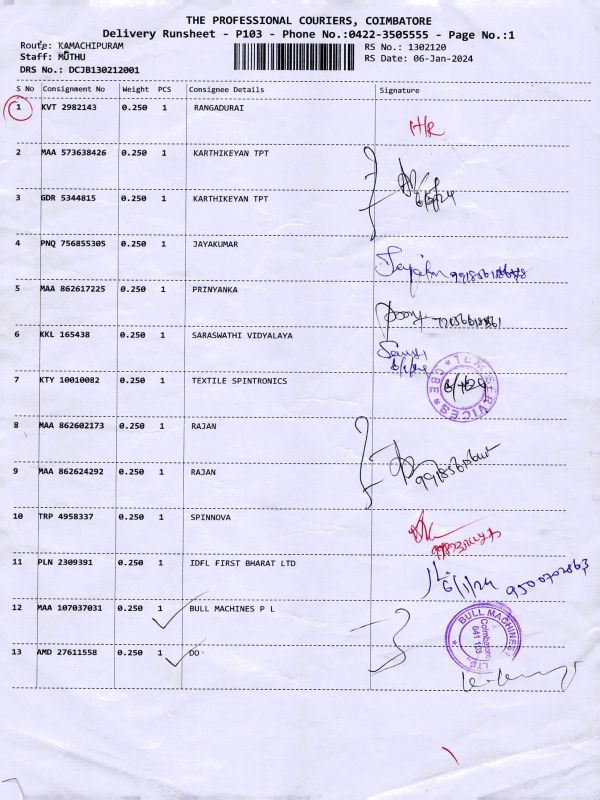 THE PROFESSIONAL COURIERS, COIMBATORE
Delivery Runsheet - P103 - Phone No.:0422-3505555 - Page No.:1
Route: KAMACHIPURAM RS No.: 1302120
Staff: MUTHU RS Date: 06-Jan-2024
DRS No.: DCJB130212001
S No Consignment No Weight PCS Consignee Details Signature
1 KVT 2982143 0.250 1 RANGADURAI
H/R
2 MAA 573638426 0.250 1 KARTHIKEYAN TPT
3 GDR 5344815 0.250 1 KARTHIKEYAN TPT
4 PNQ 756855305 0.250 1 JAYAKUMAR
5 MAA 862617225 0.250 1 PRINYANKA
6 KKL 165438 0.250 1 SARASWATHI VIDYALAYA
7 KTY 10010082 0.250 1 TEXTILE SPINTRONICS
SERVICES CBE
8 MAA 862602173 0.250 1 RAJAN
9 MAA 862624292 0.250 1 RAJAN
10 TRP 4958337 0.250 1 SPINNOVA
11 PLN 2309391 0.250 1 IDFL FIRST BHARAT LTD
6/1/24
12 MAA 107037031 0.250 1 BULL MACHINES P L
BULL MACHINES LTD
Coimbatore
641 103
13 AMD 27611558 0.250 1 DO